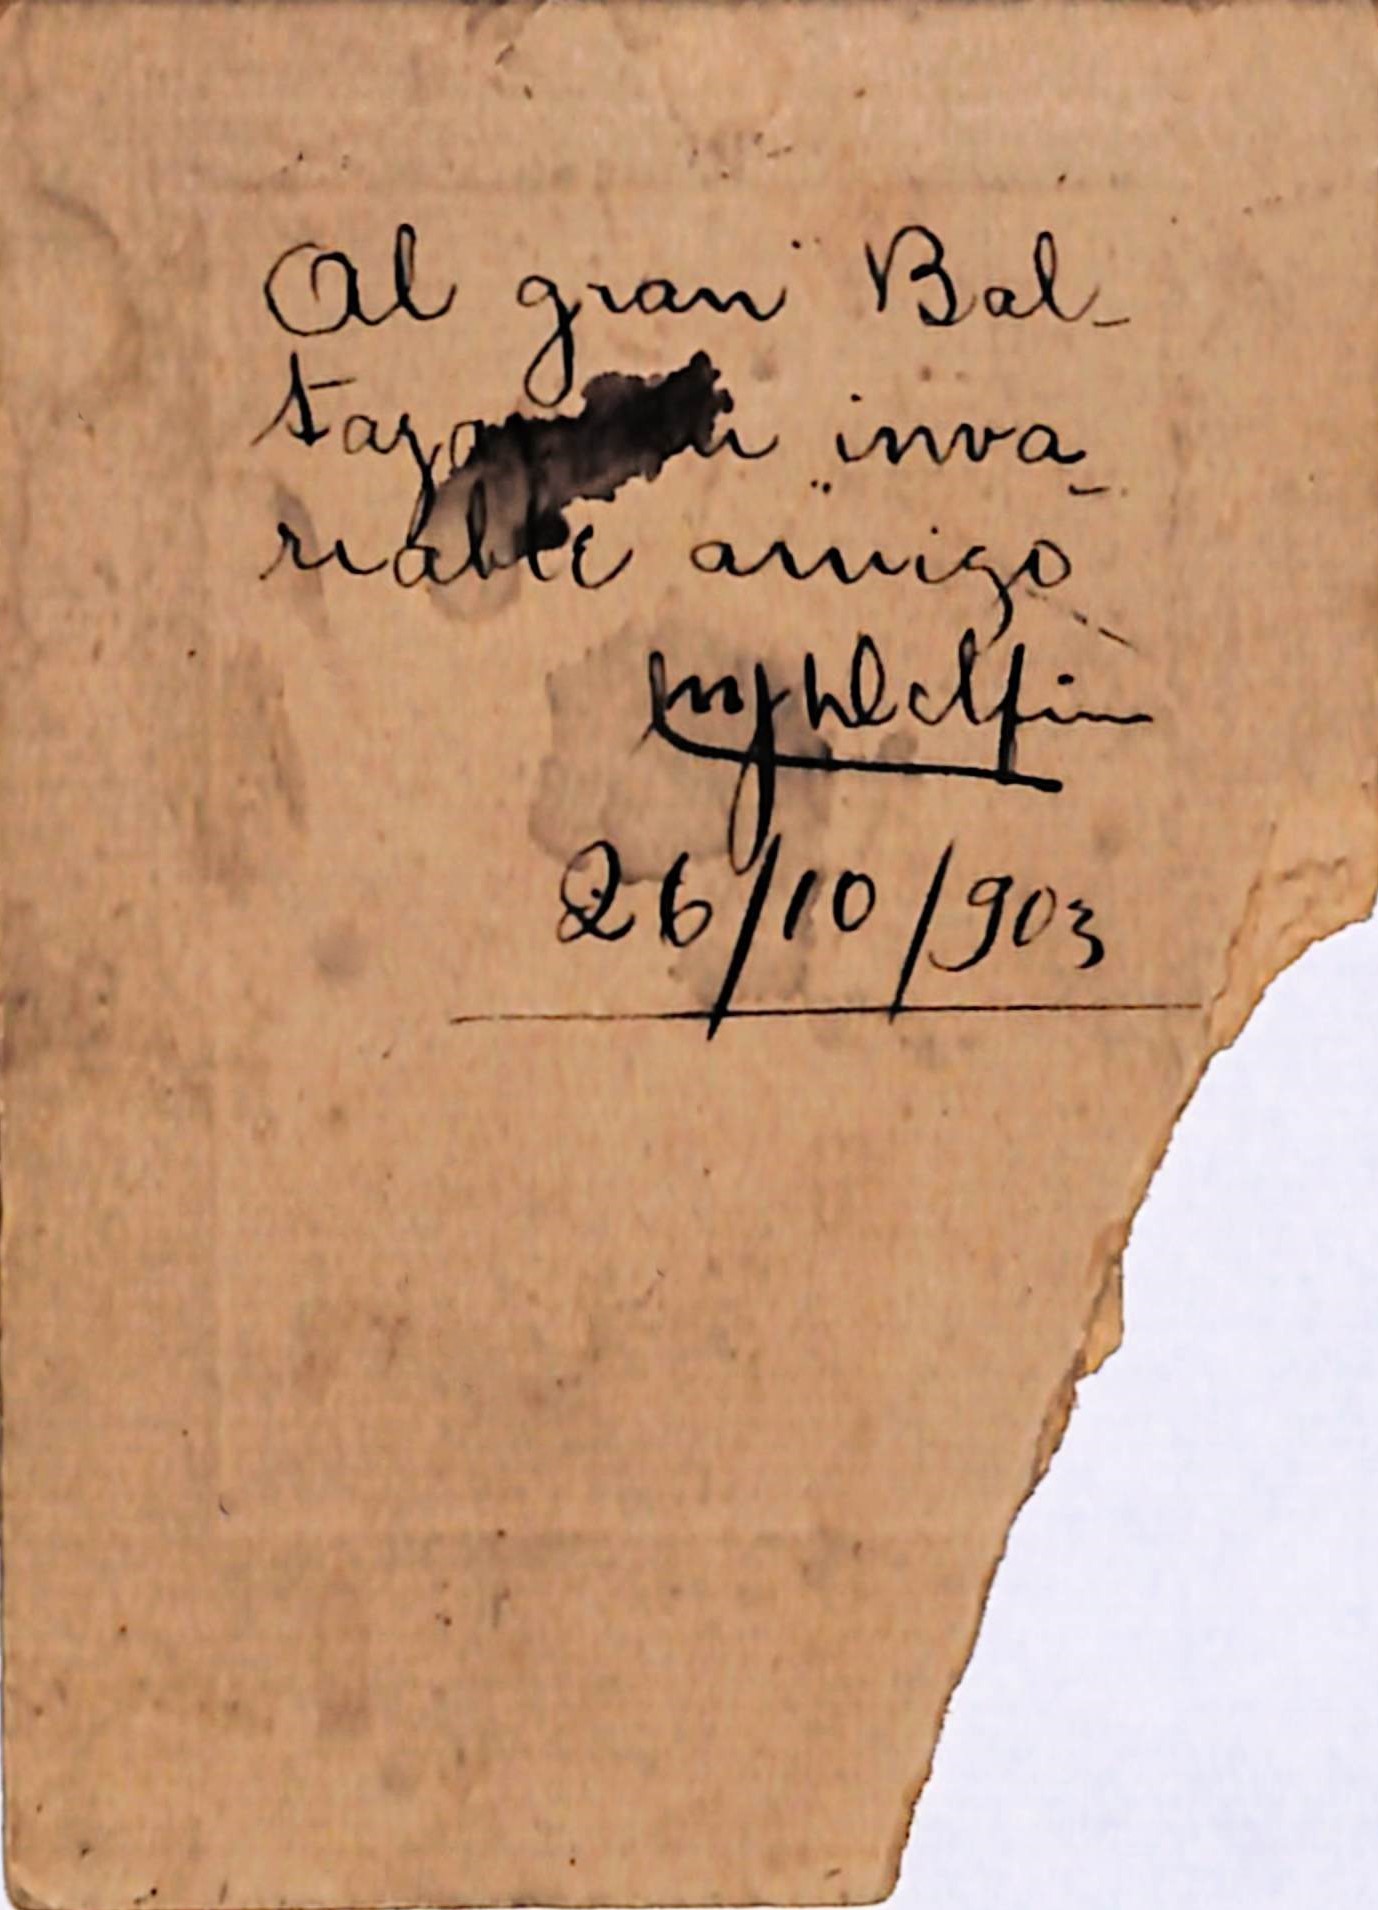 Al gran Bal-
tazar su inva-
riable amigo
26/10/903